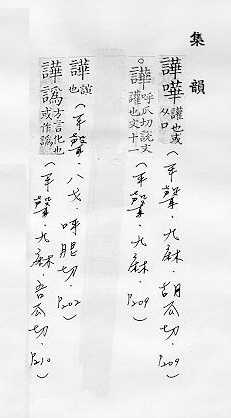 集韻
譁嘩 讙也或从口（平聲．九麻．胡瓜切．P209）
。譁 呼瓜切說文讙也文十一（平聲．九麻．P209）
譁 諠也（平聲．八戈．呼肥切．P202）
譁譌 方言化也或作譌（平聲．九麻．吾瓜切．P210）